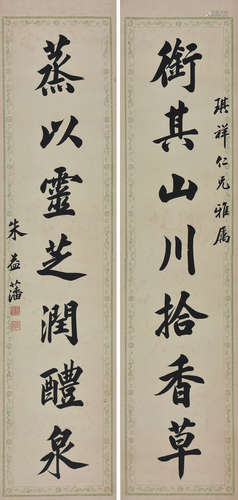 琪祥仁兄雅属
衔其山川拾香草
蒸以靈芝潤醴泉
朱益藩